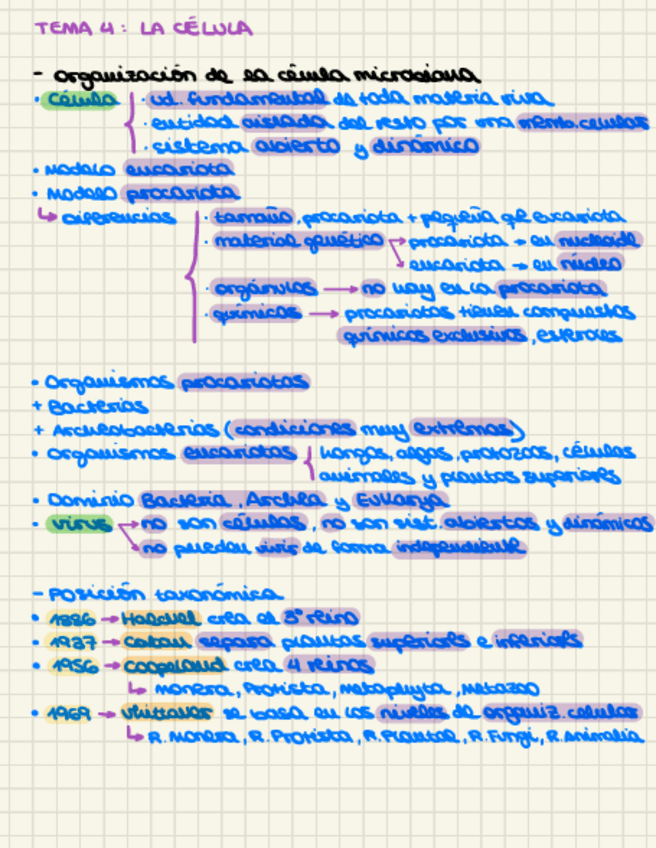 TEMA 4: LA CÉLULA
- organización de la célula microbiana
· Célula · ud. fundamental de toda materia viva
· entidad aislada del resto por una memb. celular
· sistema abierto y dinámico
· Modelo eucariota
· Modelo procariota
↳ diferencias · tamaño, procariota + pequeña q eucariota
· material genético → procariota → en nucleoide
→ eucariota → en núcleo
· orgánulos → no hay en la procariota
· químicos → procariotas tienen compuestos
químicos exclusivos, esteroles
· Organismos procariotas
+ Bacterias
+ Archeobacterias (condiciones muy extremas)
· Organismos eucariotas hongos, algas, protozoos, células
animales y plantas superiores
· Dominio Bacteria, Archea y Eukarya
· virus → no son células, no son sist. abiertos y dinámicos
→ no pueden vivir de forma independiente
- Posición taxonómica
· 1886 → Haeckel crea el 3º reino
· 1937 → separa plantas superiores e inferiores
· 1956 → Coopeland crea 4 reinos
↳ monera, Protista, metaphyta, Metazoo
· 1969 → Whittaker se basa en los niveles de organiz. celular
↳ R. Monera, R. Protista, R. Plantae, R. Fungi, R. Animalia